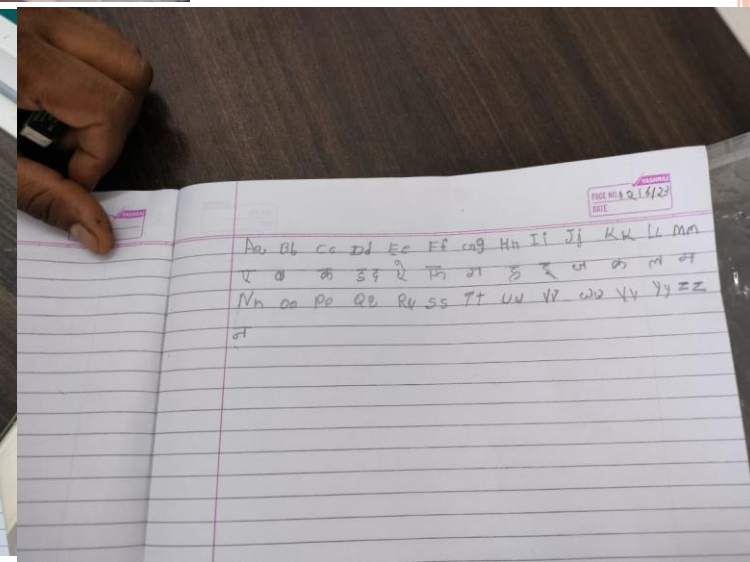 YASHRAJ
PAGE NO.
DATE
12/6/23
Aa Bb Cc Dd Ee Ff Gg Hh Ii Jj Kk LL Mm
ए ब क ड द ऐ फ ग ह इ ज क ल म
Nn Oo Pp Qq Rr Ss Tt Uu Vv ww Yy zz
न